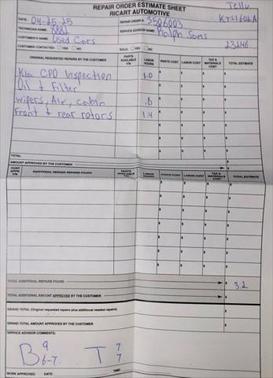 REPAIR ORDER ESTIMATE SHEET
RICART AUTOMOTIVE
DATE
REPAIR ORDER # 3506003
TECHNICIAN NAME
SERVICE ADVISOR NAME Ralph Sons
CUSTOMER'S NAME Used Cars
23246
CUSTOMER CONTACTED YES NO
ORIGINAL REQUESTED REPAIRS BY THE CUSTOMER PARTS AVAILABLE Y/N LABOR HOURS PARTS COST LABOR COST TAX & MATERIALS COST TOTAL ESTIMATE
Kia CPO Inspection 1.0
Oil + Filter
wipers, Air, cabin .8
Front + rear rotors 1.4
TOTAL:
AMOUNT APPROVED BY THE CUSTOMER
ADDITIONAL REPAIRS FOUND LABOR HOURS PARTS COST LABOR COST TAX & MATERIALS COST TOTAL ESTIMATE
TOTAL ADDITIONAL REPAIRS FOUND 3.2
TOTAL ADDITIONAL AMOUNT APPROVED BY THE CUSTOMER
GRAND TOTAL (Original requested repairs plus additional needed repairs)
GRAND TOTAL AMOUNT APPROVED BY THE CUSTOMER
SERVICE ADVISOR COMMENTS:
B 9 6-7 T 7 7
WORK APPROVED: DATE TIME